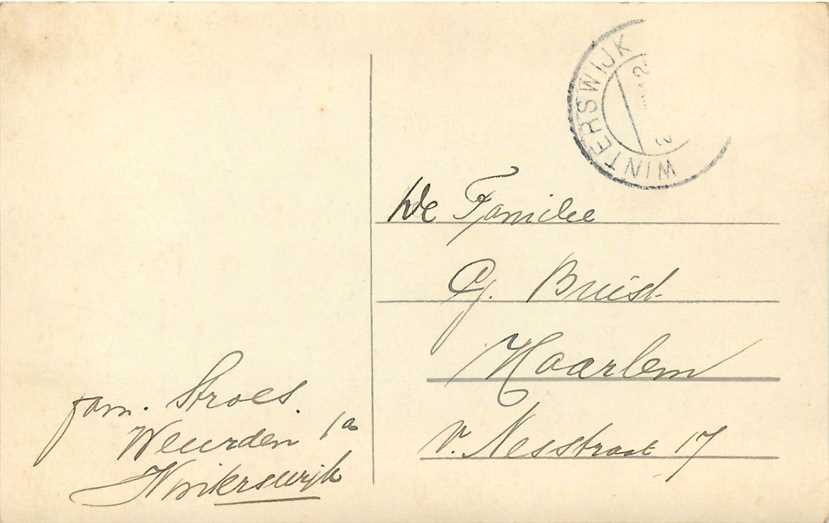 WINTERSWIJK
De Familie
Cj. Buist
Haarlem
v. Nesstraat 17
fam. Stroes.
Weurden 1a
Winterswijk